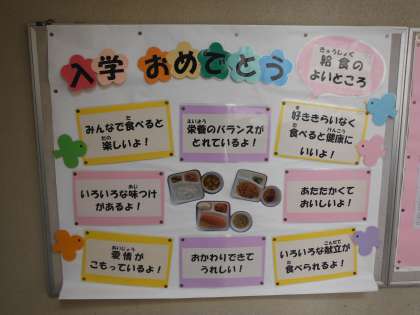 入学 おめでとう
きゅうしょく
給食の
よいところ
みんなで食べると
楽しいよ！
栄養のバランスが
とれているよ！
好ききらいなく
食べると健康に
いいよ！
いろいろな味つけ
があるよ！
あたたかくて
おいしいよ！
愛情が
こもっているよ！
おかわりできて
うれしい！
いろいろな献立が
食べられるよ！